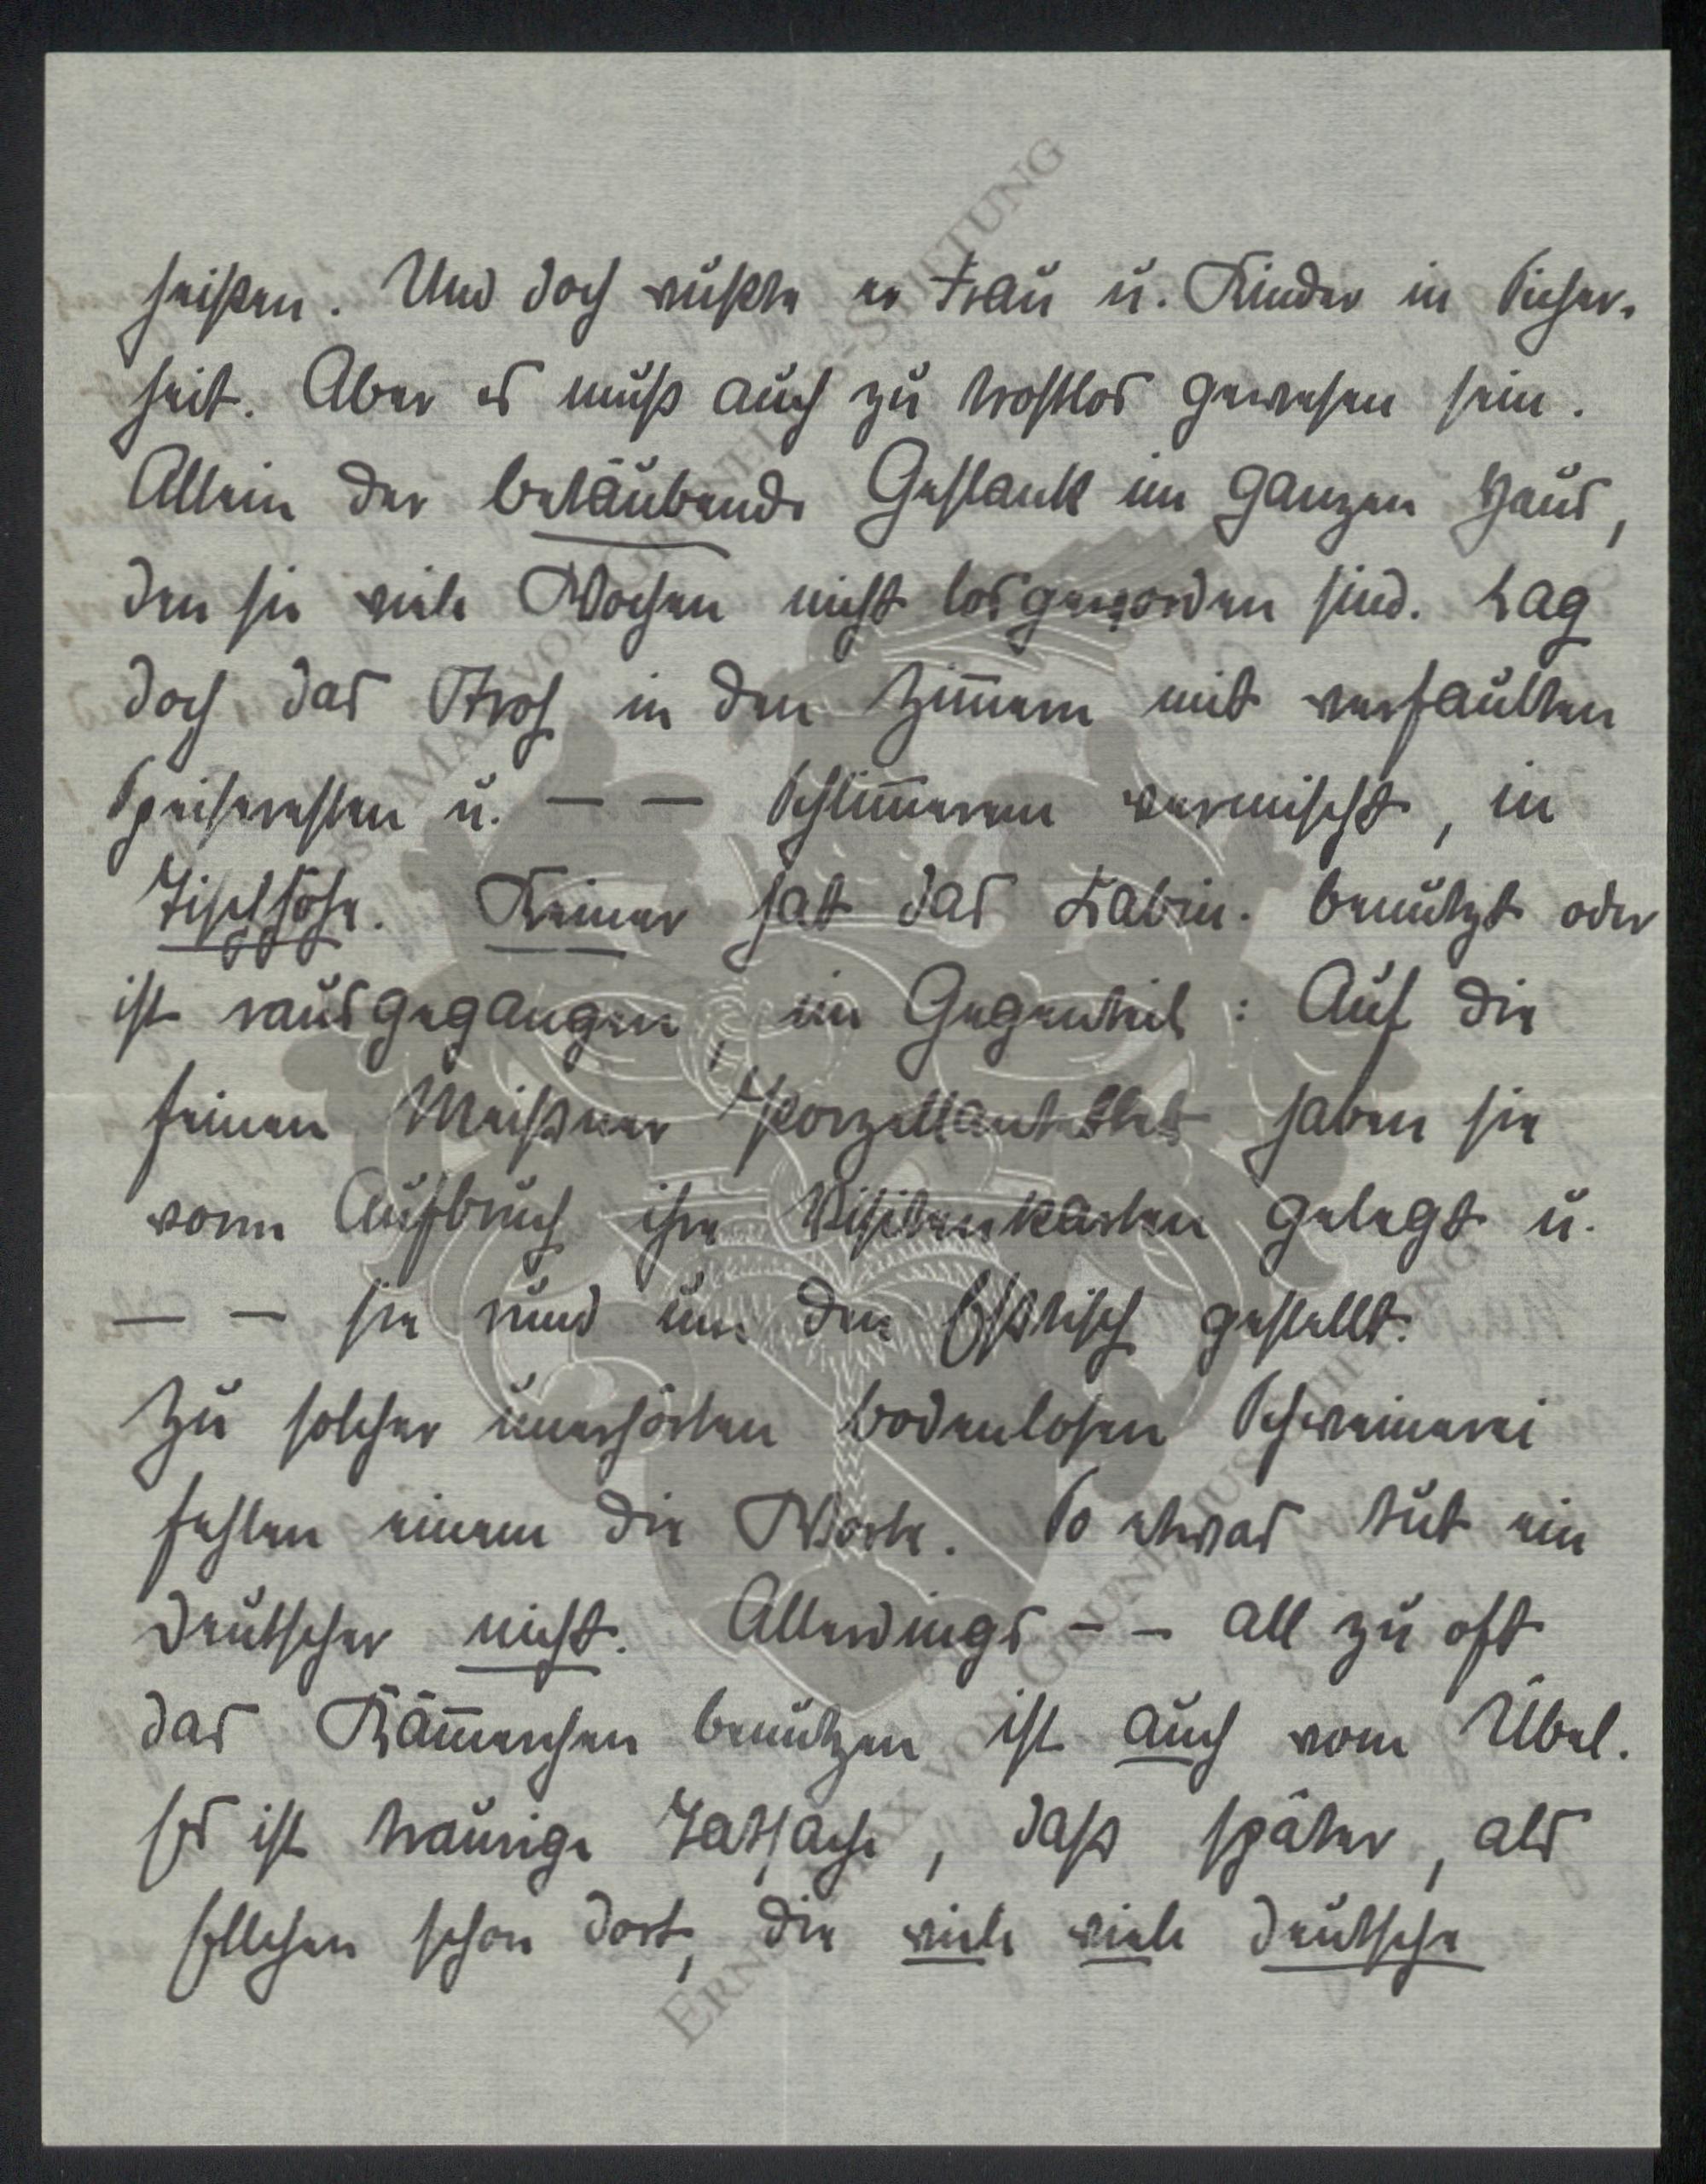 heißen. Und doch wußte er Frau u. Kinder in Sicher-
heit. Aber es muß auch zu trostlos gewesen sein.
Allein der betäubende Gestank im ganzen Haus,
den sie viele Wochen nicht losgeworden sind. Lag
doch das Stroh in den Zim̅ern mit verfaulten
Speiseresten u. — — Schlim̅erem vermischt, in
Tischhöhe. Keiner hat das Kabin. benützt oder
ist rausgegangen, im Gegenteil: Auf die
feinen Meißner Porzellanteller haben sie
vorm Aufbruch ihre Visitenkarten gelegt u.
— — sie rund um den Eßtisch gestellt.
Zu solcher unerhörten bodenlosen Schweinerei
fehlen einem die Worte. So etwas tut ein
Deutscher nicht. Allerdings — — all zu oft
das Käm̅erchen benutzen ist auch vom Übel.
Es ist traurige Tatsache, daß später, als
Ellchen schon dort, die viele viele deutsche
ERNST MAX VON GRUNELIUS-STIFTUNG
ERNST MAX VON GRUNELIUS-STIFTUNG